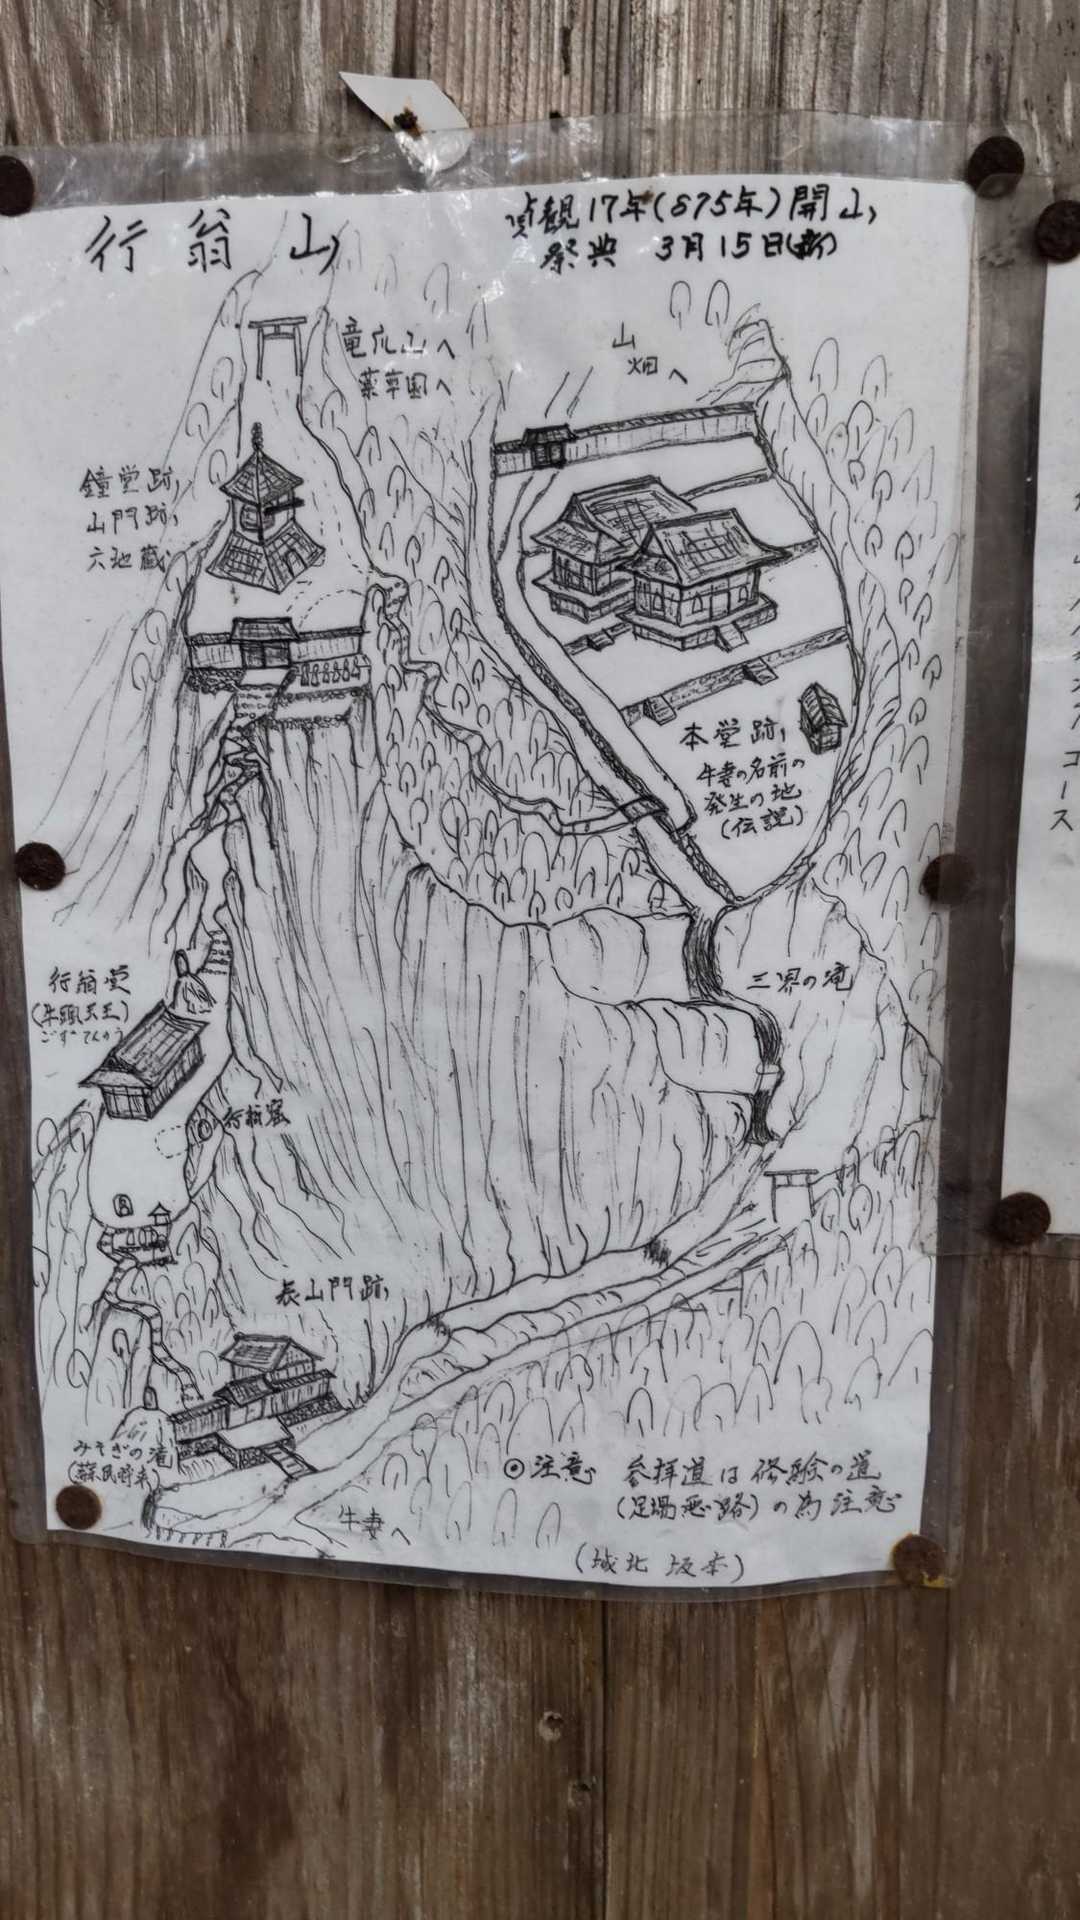 行翁山
貞観17年(875年)開山
祭典 3月15日(新)
竜爪山へ
薬草園へ
山
畑へ
鐘堂跡
山門跡
六地蔵
本堂跡
牛妻の名前の
発生の地
(伝説)
三界の滝
行翁堂
(牛頭天王)
ごずてんのう
行翁窟
表山門跡
みそぎの滝
(蘇民将来)
牛妻へ
注意 参拝道は修験の道
(足場悪路)の為注意
(城北 坂本)
コース